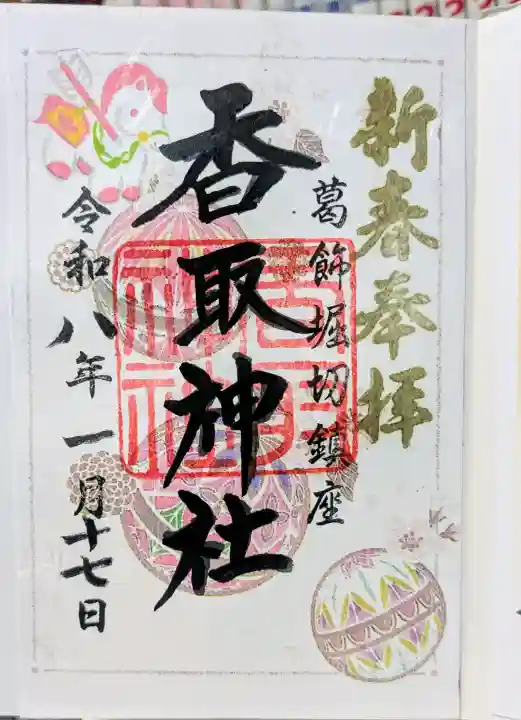 新春奉拝
葛飾堀切鎮座
香取神社
令和八年一月十七日